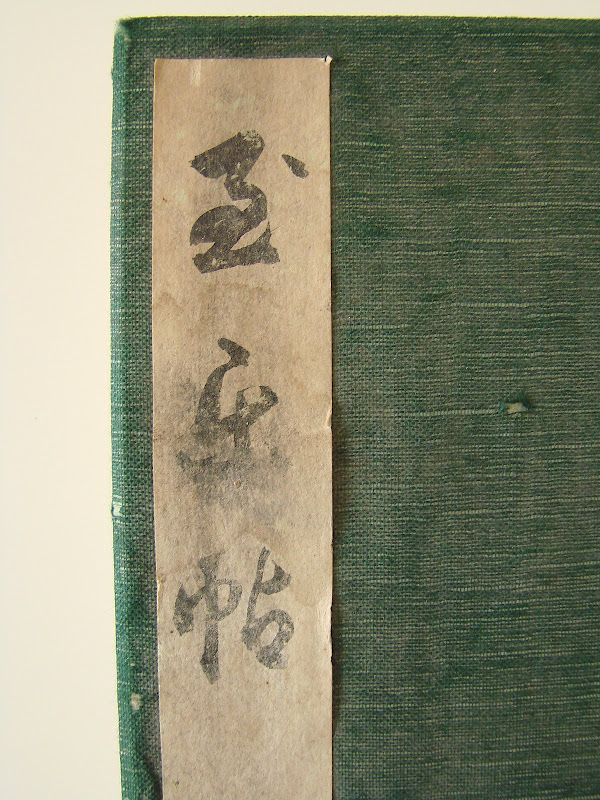 玉泉帖